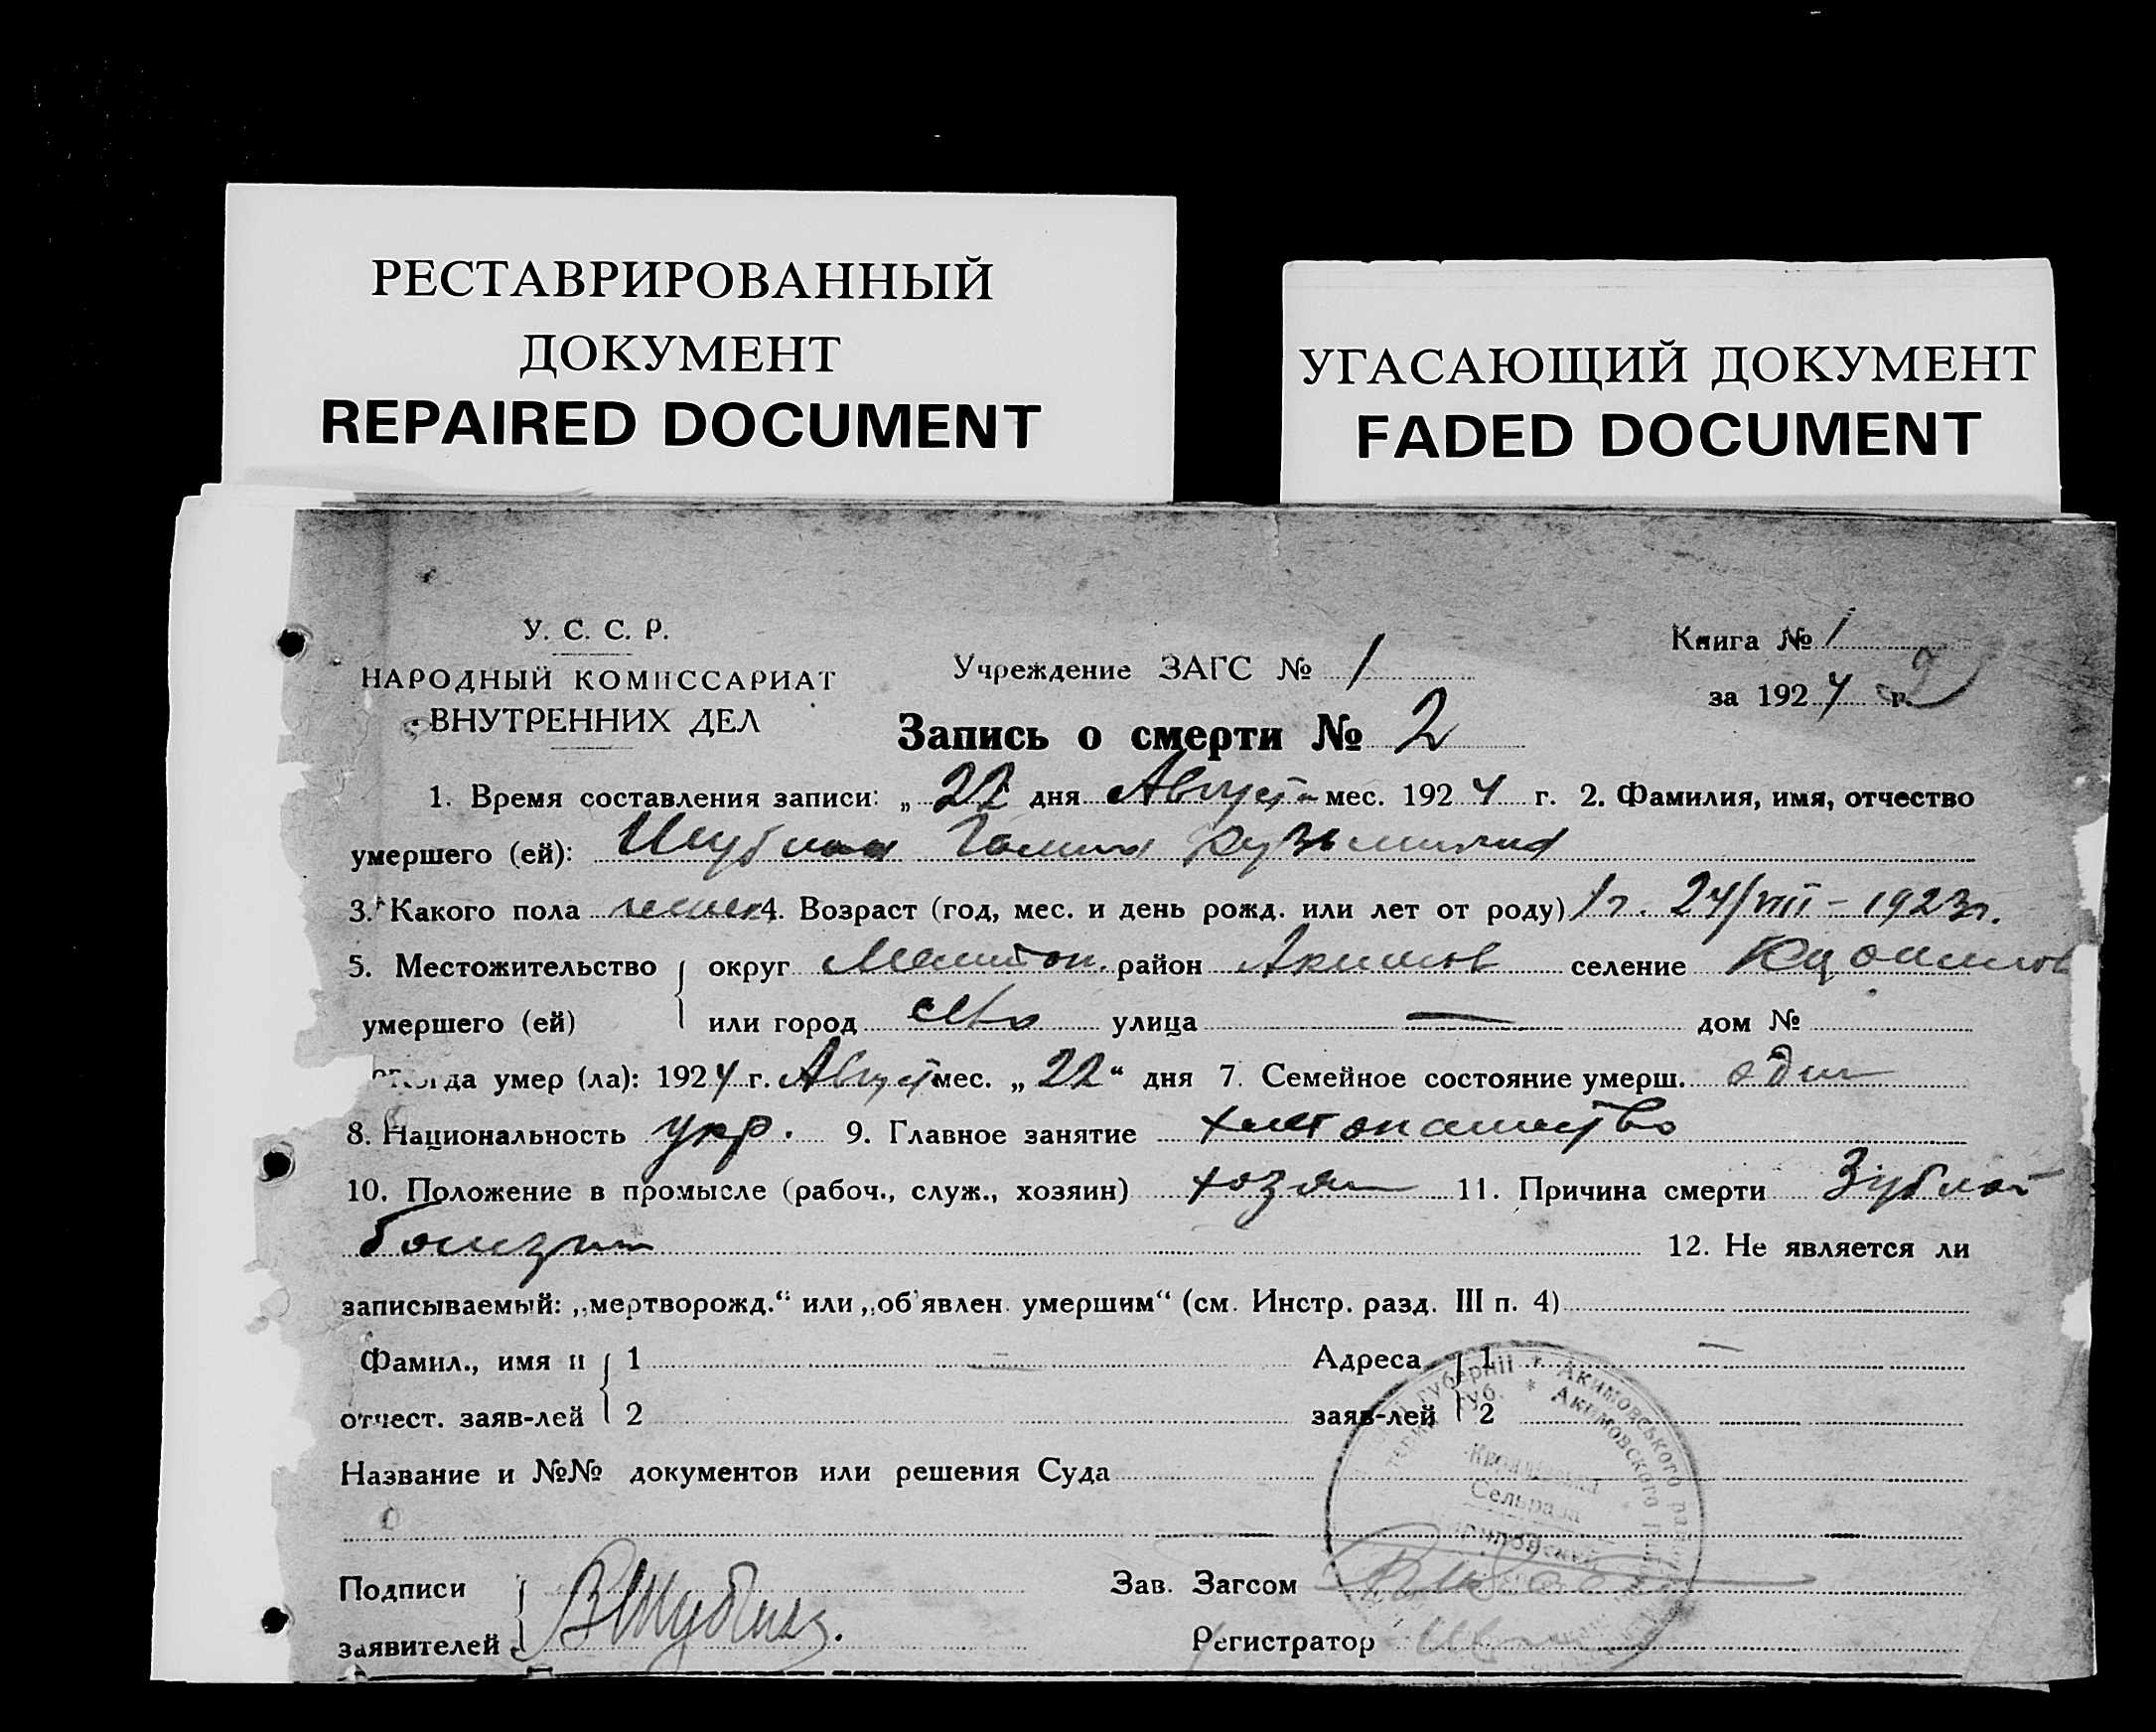 РЕСТАВРИРОВАННЫЙ
ДОКУМЕНТ
REPAIRED DOCUMENT
УГАСАЮЩИЙ ДОКУМЕНТ
FADED DOCUMENT
У. С. С. Р.
НАРОДНЫЙ КОМИССАРИАТ
ВНУТРЕННИХ ДЕЛ
Учреждение ЗАГС № 1
Книга № 1
за 1924 г.
2
Запись о смерти № 2
1. Время составления записи: „22 дня Август мес. 1924 г. 2. Фамилия, имя, отчество
умершего (ей): Шубина Галина Кузьминина
3. Какого пола женск 4. Возраст (год, мес. и день рожд. или лет от роду) 1 г. 24/VIII – 1923 г.
5. Местожительство округ Мелитоп. район Акимов селение
умершего (ей) или город улица — дом №
Когда умер (ла): 1924 г. Август мес. „22“ дня 7. Семейное состояние умерш. один
8. Национальность укр. 9. Главное занятие хлебопашество
10. Положение в промысле (рабоч., служ., хозяин) хозяин 11. Причина смерти Зубной
болезни 12. Не является ли
записываемый: „мертворожд.“ или „об'явлен. умершим“ (см. Инстр. разд. III п. 4)
Фамил., имя и 1 — Адреса 1 —
отчест. заяв-лей 2 заяв-лей 2
Название и №№ документов или решения Суда
губернії * Акимовського
губ. * Акимовского
Сельрада
Подписи ВШубин Зав. Загсом
заявителей Регистратор